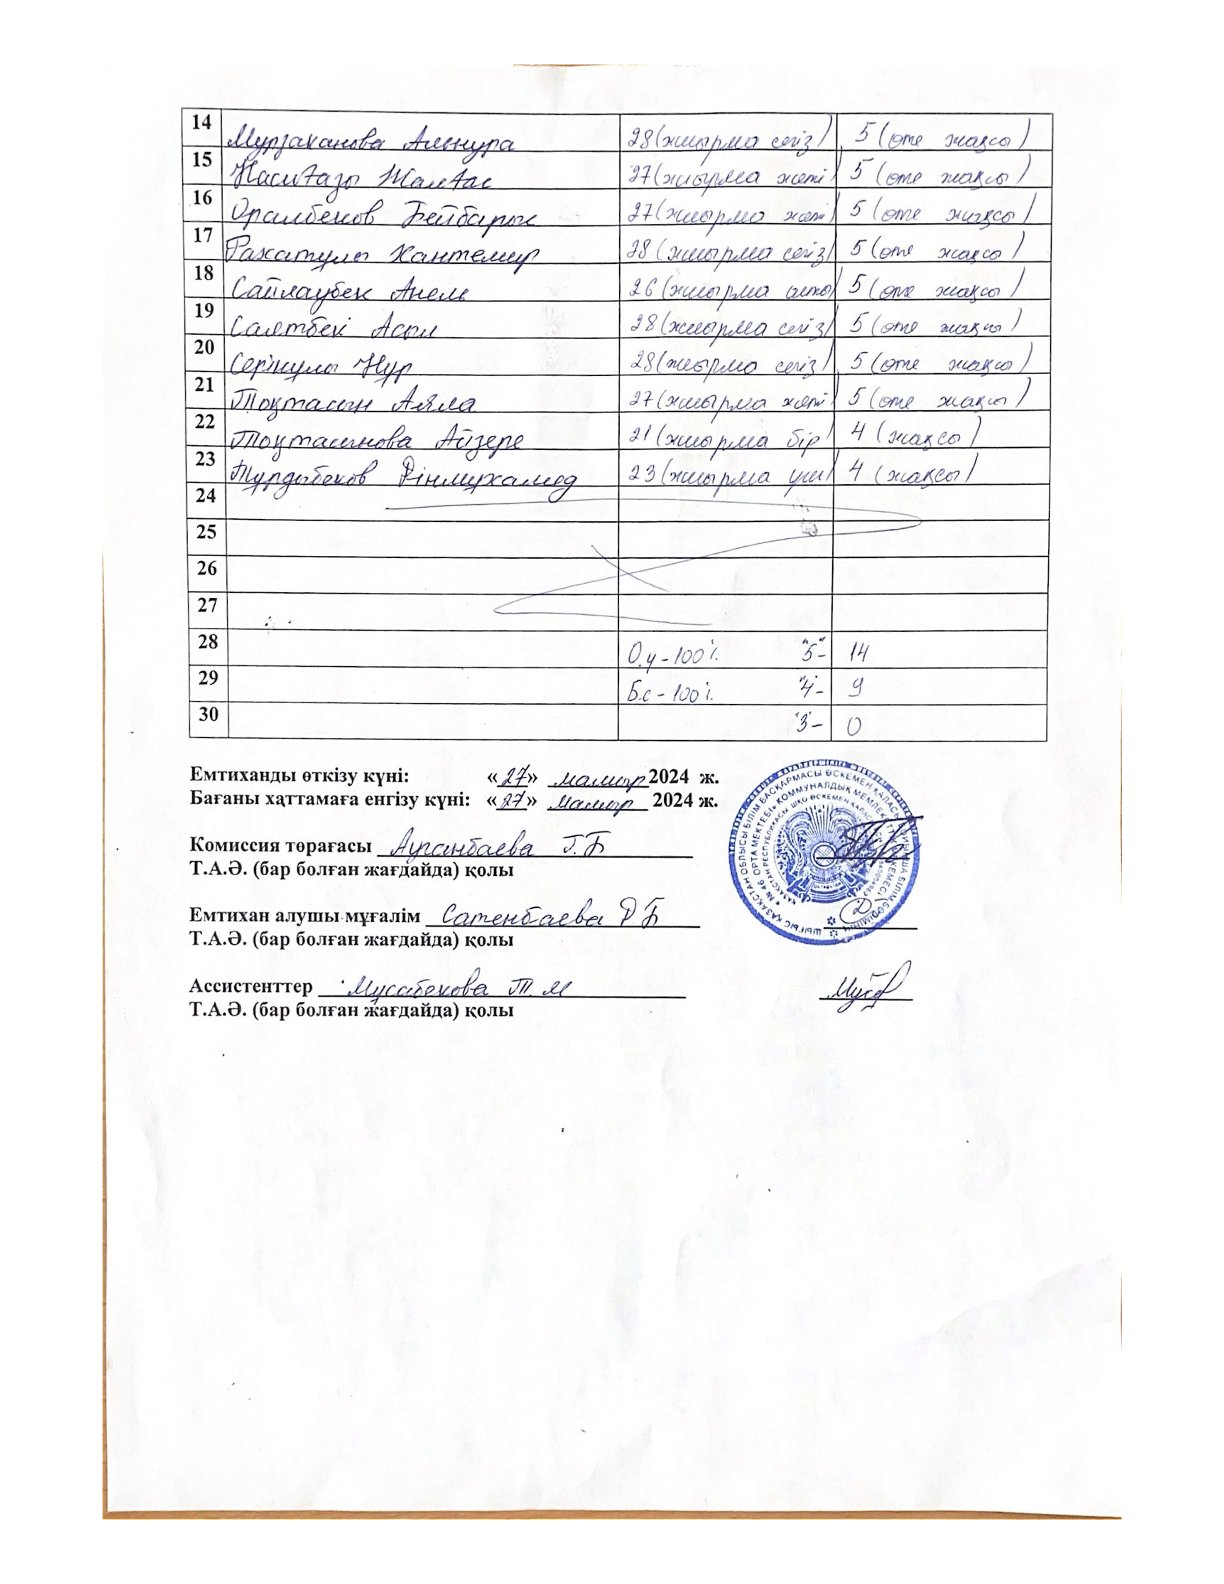 14 Мурзаканова Аянура 28 (жиырма сегіз) 5 (өте жақсы)
15 Жалғас 27 (жиырма жеті) 5 (өте жақсы)
16 Оралбеков Бейбарыс 27 (жиырма жеті) 5 (өте жақсы)
17 Рахатұлы Хантемир 28 (жиырма сегіз) 5 (өте жақсы)
18 Сайлаубек Анель 26 (жиырма алты) 5 (өте жақсы)
19 Саятбек Асыл 28 (жиырма сегіз) 5 (өте жақсы)
20 Серікұлы Нұр 28 (жиырма сегіз) 5 (өте жақсы)
21 Тоқтасын Аяла 27 (жиырма жеті) 5 (өте жақсы)
22 Тоқтасынова Айзере 21 (жиырма бір) 4 (жақсы)
23 Тұрдыбеков Дінмұхамед 23 (жиырма үш) 4 (жақсы)
24
25
26
27
28 О.у - 100% "5"- 14
29 Б.с - 100% "4"- 9
30 "3"- 0
Емтиханды өткізу күні: «27» мамыр 2024 ж.
Бағаны хаттамаға енгізу күні: «27» мамыр 2024 ж.
Комиссия төрағасы Г.Б
Т.А.Ә. (бар болған жағдайда) қолы
Емтихан алушы мұғалім Сатенбаева Р Б
Т.А.Ә. (бар болған жағдайда) қолы
Ассистенттер Мусабекова Т. М
Т.А.Ә. (бар болған жағдайда) қолы